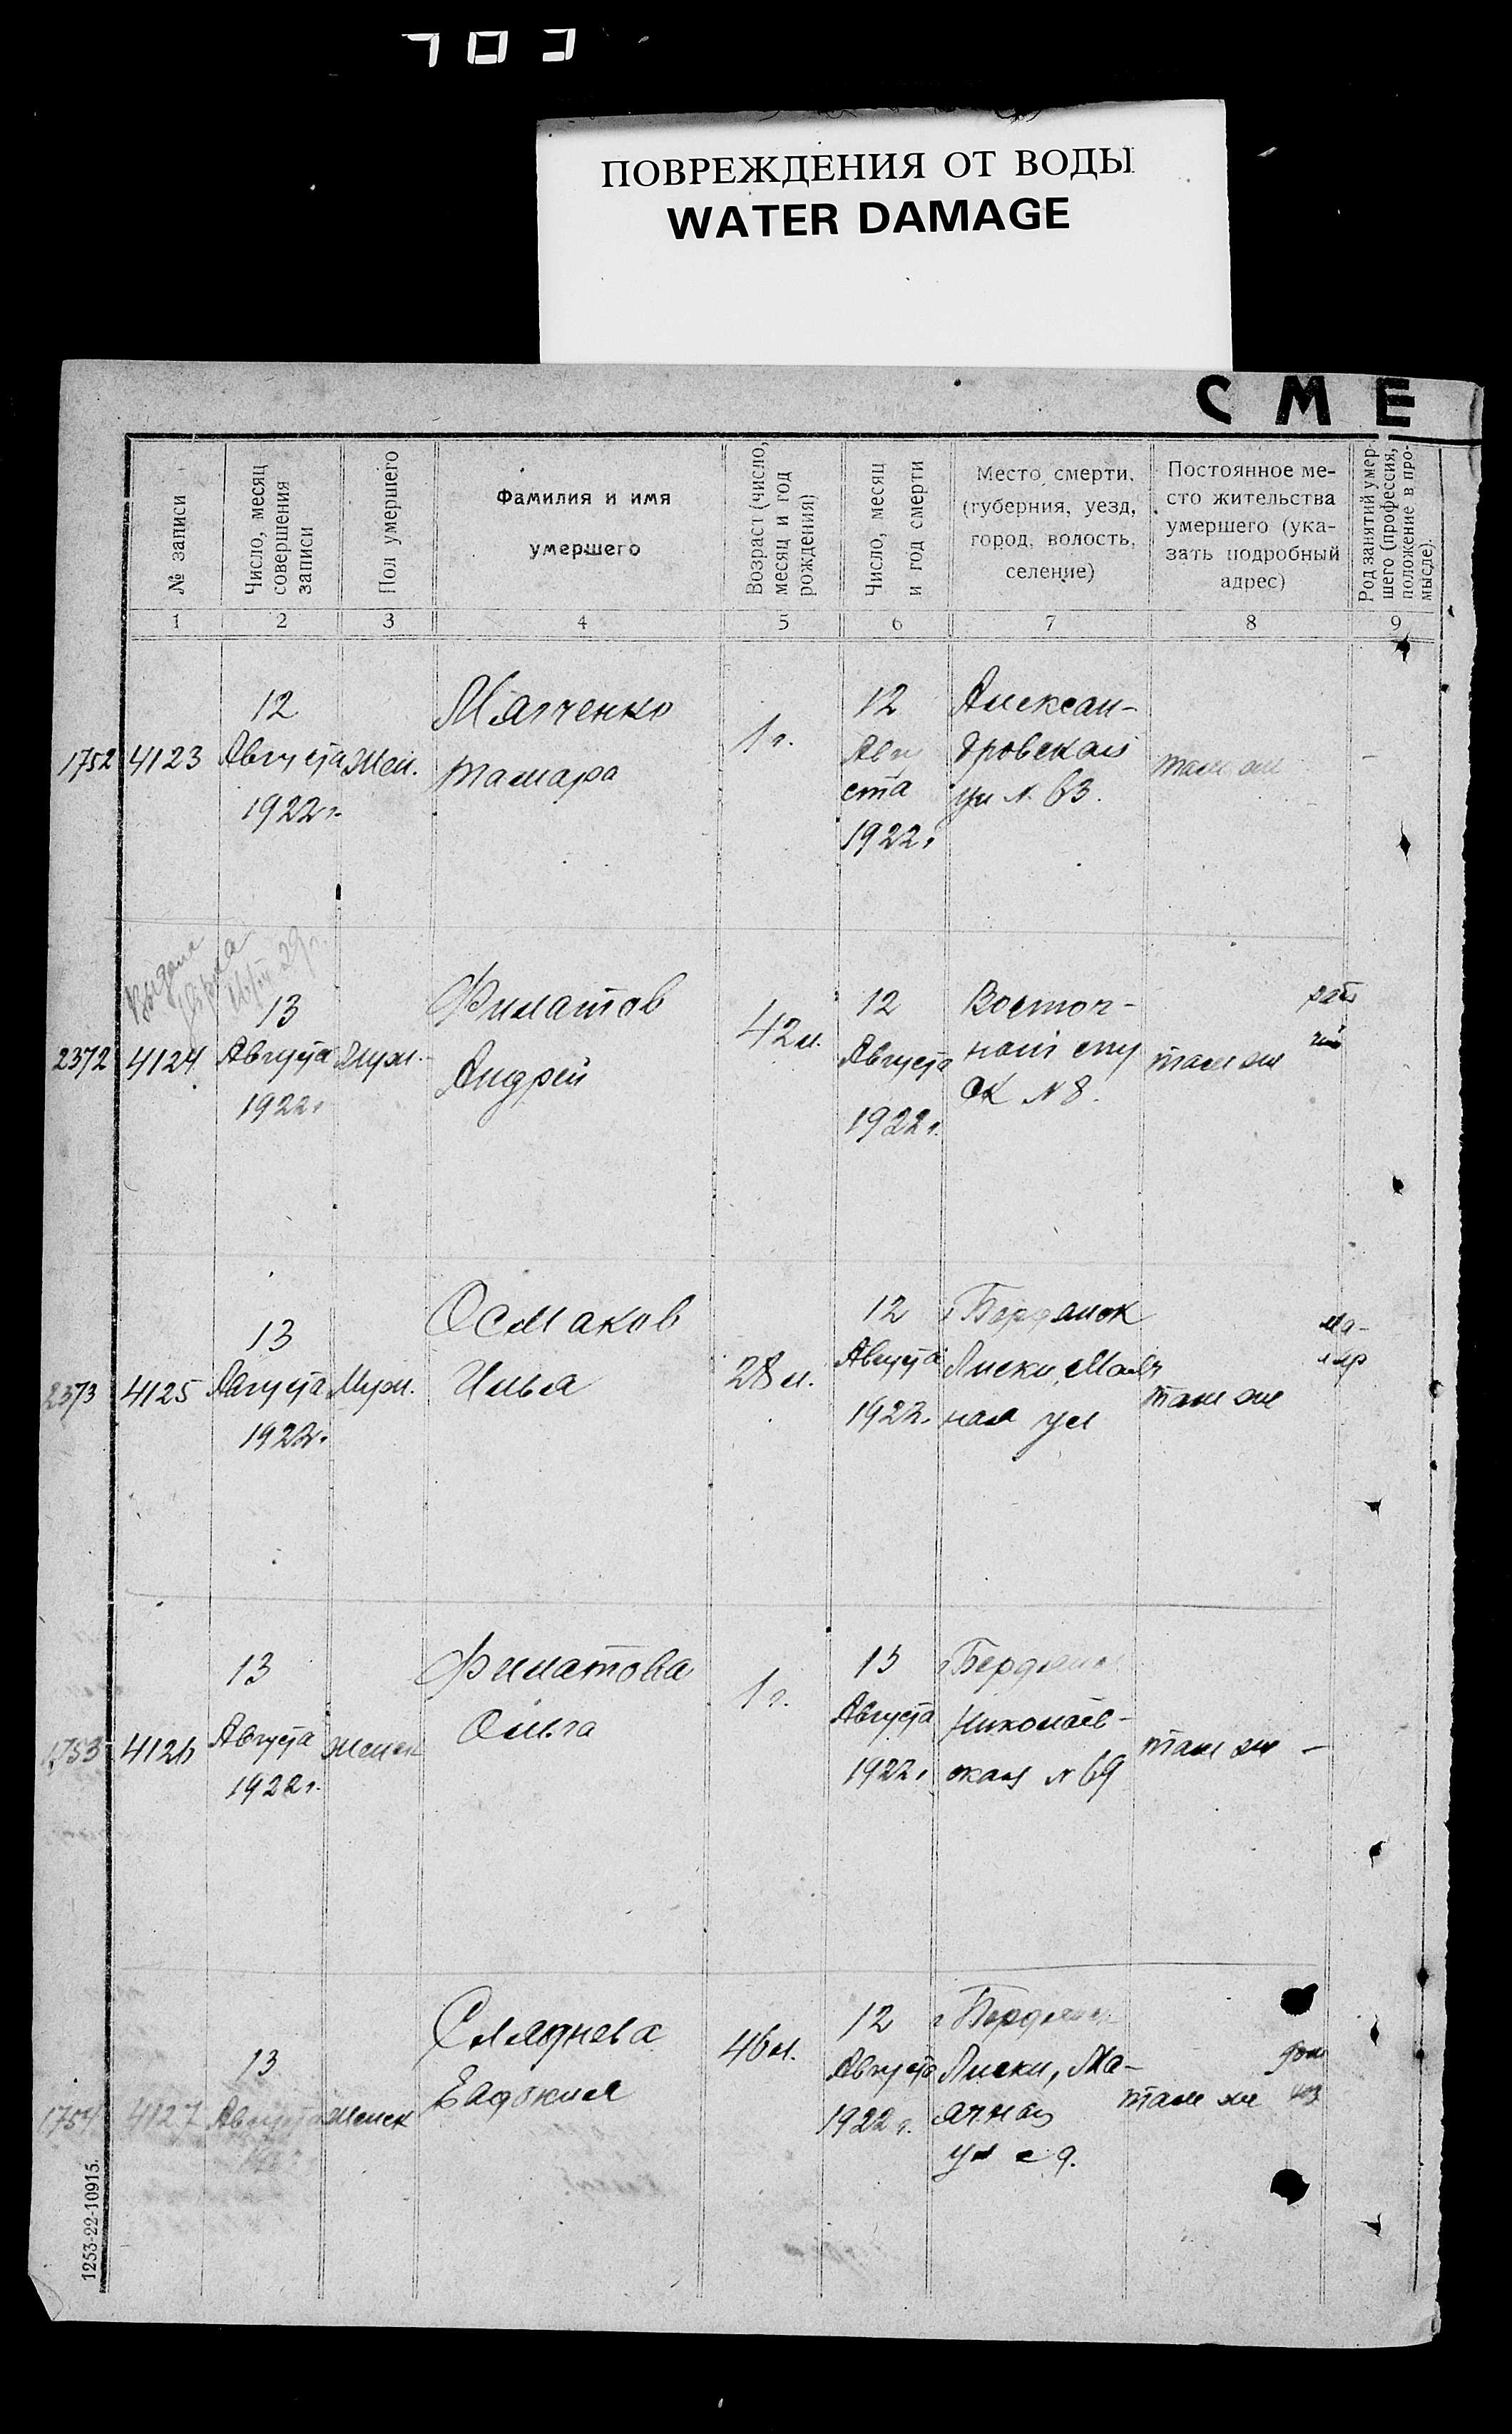 ПОВРЕЖДЕНИЯ ОТ ВОДЫ
WATER DAMAGE
СМЕ
№ записи
Число, месяц
совершения
записи
Пол умершего
Фамилия и имя
умершего
Возраст (число,
месяц и год
рождения)
Число, месяц
и год смерти
Место смерти,
(губерния, уезд,
город, волость,
селение)
Постоянное ме-
сто жительства
умершего (ука-
зать подробный
адрес)
Род занятий умер-
шего (профессия,
положение в про-
мысле).
1 2 3 4 5 6 7 8 9
1752 4123
12
Августа
1922 г.
Жен.
Мятченко
Тамара
1 г.
12
Авгу
ста
1922 г
Алексан-
дровская
ул N 63.
там же
-
Выдана
2372 4124
13
Августа
1922 г
Муж.
Филатов
Андрей
42 л.
12
Августа
1922 г.
Восточ-
ной спу
ск N 8.
там же
2373 4125
13
Августа
1922 г.
Муж.
Осмаков
Илья
28 л.
12
Августа
1922 г.
Лиски, Маяч
ная ул
там же
Ма-
ляр
1753 4126
13
Августа
1922 г.
Женск
Филатова
Ольга
1 г.
13
Августа
1922 г
г Бердянск
Николаев-
ская N 69
там же
-
1754 4127
13
Августа
Женск
Сляднева
Евдокия
46 л.
12
Августа
1922 г.
г Бердянск
Лиски, Ма-
ячная
ул с 9.
там же
дом
хоз
1253-22-10915.